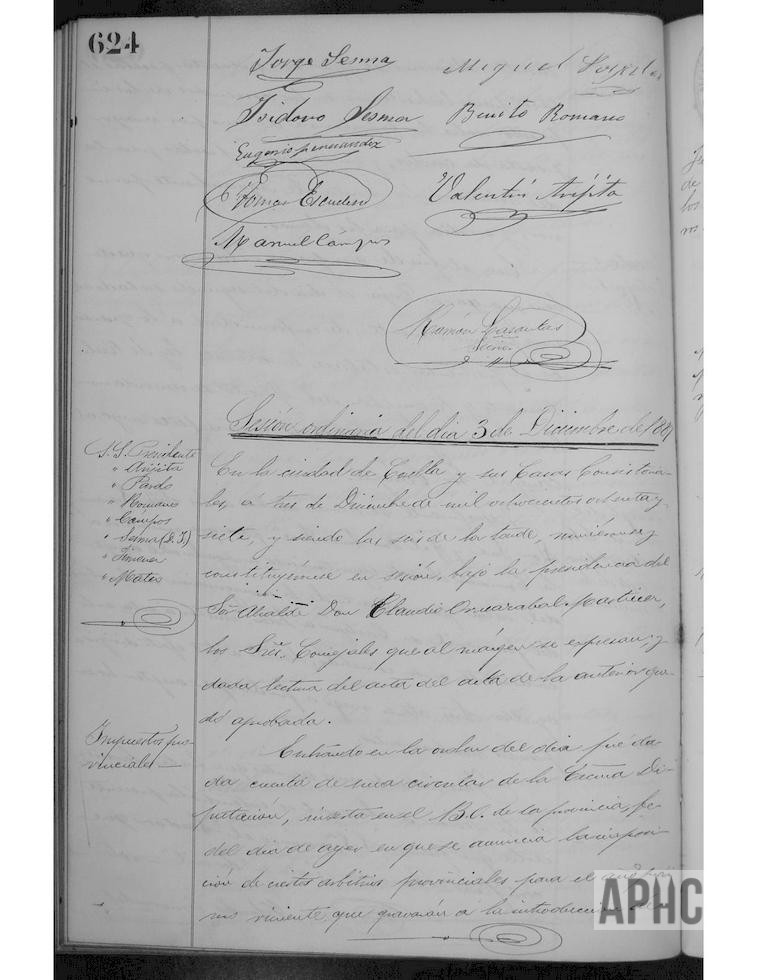 624
Jorge Sesma
Miguel
Isidoro Sesma
Benito Romano
Eugenio Fernandez
Tomas Escudero
Valentín Arijita
Manuel Cámpos
Ramón
Sesión ordinaria del dia 3 de Diciembre de 1887
S.S. Presidente
" Arijita
" Pardo
" Romano
" Cámpos
" Sesma (D. I.)
" Jimenez
" Mateo
En la ciudad de y sus Casas Consistoria-
les, á tres de Diciembre de mil ochocientos ochenta y
siete, y siendo las seis de la tarde, reuniéronse y
constituyéronse en sesión, bajo la presidencia del
Sor Alcalde Don Claudio Martinez,
los Sres. Concejales que al márgen se expresan; y
dada lectura del acta del acta de la anterior que-
dó aprobada.
Impuestos pro-
vinciales
Entrando en la orden del dia fué da-
da cuenta de una circular de la Excma Di-
putación, inserta en el B.O. de la provincia, fe-
del dia de ayer en que se anuncia la imposi-
ción de ciertos arbitrios provinciales para el año próxi-
mo viniente, que gravarán a la introducción
APHC